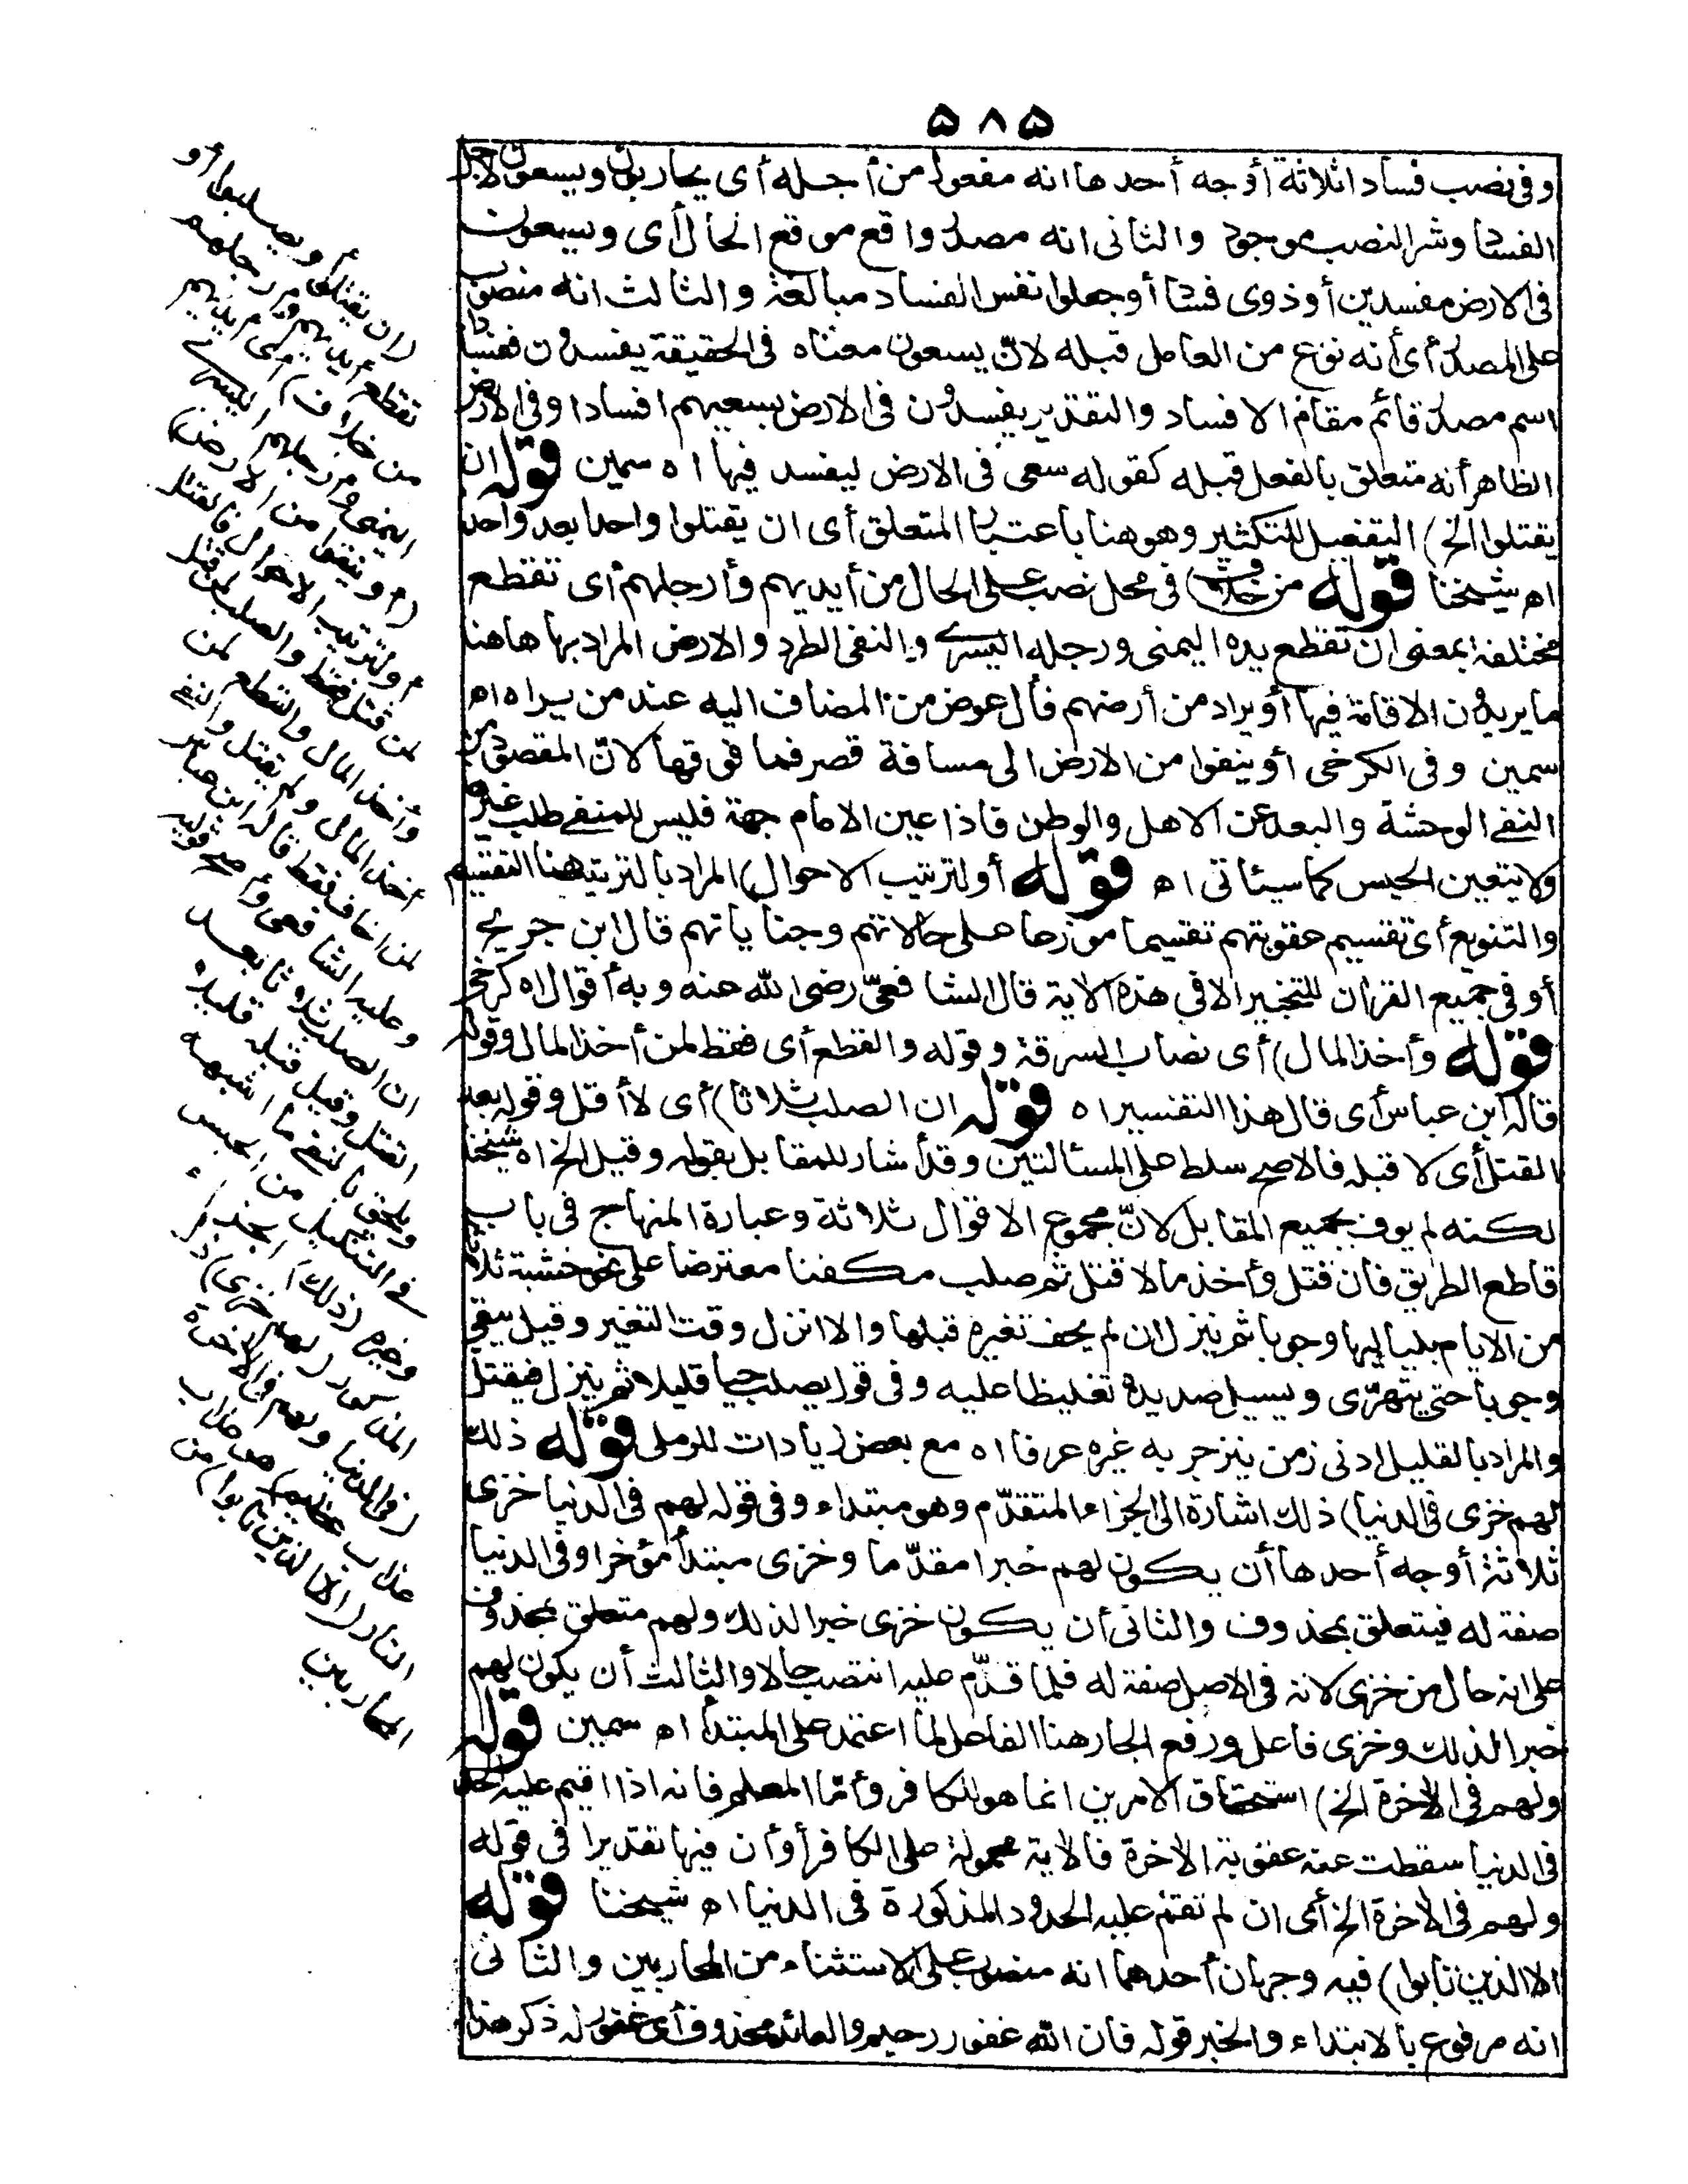 ٥٨٥
وفى نصب فسادا ثلاثة أوجه أحدها انه مفعول من أجله أى يحاربون ويسعون لاجل
الفساد وشرط النصب موجود والثانى انه مصدر واقع موقع الحال أى ويسعون
فى الارض مفسدين أو ذوى فساد أو جعلوا نفس الفساد مبالغة والثالث انه منصوب
على المصدر أى أنه نوع من العامل قبله لانّ يسعون معناه فى الحقيقة يفسدون ففسادا
اسم مصدر قائم مقام الافساد والتقدير يفسدون فى الارض بسعيهم افسادا وفى الارض
الظاهر أنه متعلق بالفعل قبله كقوله سعى فى الارض ليفسد فيها اه سمين قوله ان
يقتلوا الخ) التفعيل للتكثير وهو هنا باعتبار المتعلق أى ان يقتلوا واحدا بعد واحد
اه شيخنا قوله من خلاف) فى محل نصب على الحال من أيديهم وأرجلهم أى تقطع
مختلفة بمعنى ان تقطع يده اليمنى ورجله اليسرى والنفى الطرد والارض المراد بها هاهنا
ما يريدون الاقامة فيها أو يراد من أرضهم فأل عوض من المضاف اليه عند من يراه اه
سمين وفى الكرخى أو ينفوا من الارض الى مسافة قصر فما فوقها لانّ المقصود من
النفى الوحشة والبعد عن الاهل والوطن فاذا عين الامام جهة فليس للمنفى طلب غيرها
ولا يتعين الحبس كما سيأتى اه قوله أو لترتيب الاحوال) المراد بالترتيب هنا التقسيم
والتنويع أى تقسيم عقوبتهم تقسيما موزعا على حالاتهم وجناياتهم قال ابن جريج
أو فى جميع القران للتخيير الا فى هذه الاية قال الشافعىّ رضى الله عنه وبه أقول اه كرخى
قوله وأخذ المال) أى نصاب السرقة وقوله والقطع أى فقط لمن أخذ المال وقوله
قاله ابن عباس أى قال هذا التفسير اه قوله ان الصلب ثلاثا) أى لا أقل وقوله بعد
القتل أى لا قبله فالاصح سلط على المسألتين وقد أشار للمقابل بقوله وقيل الخ اه شيخنا
لكنه لم يوف بجميع المقابل لانّ مجموع الاقوال ثلاثة وعبارة المنهاج فى باب
قاطع الطريق فان قتل وأخذ مالا قتل ثم صلب مكفنا معترضا على نحو خشبة ثلاثا
من الايام بلياليها وجوبا ثم ينزل ان لم يخف تغيره قبلها والا انزل وقت التغير وقيل يبقى
وجوبا حتى يتهرّى ويسيل صديده تغليظا عليه وفى قول يصلب حيا قليلا ثم ينزل فيقتل
والمراد بالقليل ادنى زمن ينزجر به غيره عرفا اه مع بعض زيادات للرملى قوله ذلك
لهم خزى فى الدنيا) ذلك اشارة الى الجزاء المتقدّم وهو مبتداء وفى قوله لهم فى الدنيا خزى
ثلاثة أوجه أحدها أن يكون لهم خبرا مقدّما وخزى مبتدأ مؤخرا وفى الدنيا
صفة له فيتعلق بمحذوف والثانى أن يكون خزى خبرا لذلك ولهم متعلق بمحذوف
على انه حال من خزى لانه فى الاصل صفة له فلما قدّم عليه انتصب حالا والثالث أن يكون لهم
خبرا لذلك وخزى فاعل ورفع الجار هنا الفاعل لما اعتمد على المبتدأ اه سمين قوله
ولهم فى الاخرة الخ) استحقاق الامرين انما هو للكافر وأمّا المسلم فانه اذا اقيم عليه الحد
فى الدنيا سقطت عنه عقوبة الاخرة فالاية محمولة على الكافر أو أن فيها تقديرا فى قوله
ولهم فى الاخرة الخ أى ان لم تقم عليه الحدود المذكورة فى الدنيا اه شيخنا قوله
الا الذين تابوا) فيه وجهان أحدهما انه منصوب على الاستثناء من المحاربين والثانى
انه مرفوع بالابتداء والخبر قوله فان الله غفور رحيم والعائد محذوف أى غفور له ذكر هذا
(ان يقتلوا أو يصلبوا أو
تقطع أيديهم وأرجلهم
من خلاف) أى أيديهم
اليمنى وأرجلهم اليسرى
(أو ينفوا من الارض)
أو لترتيب الاحوال فالقتل
لمن قتل فقط والصلب لمن قتل
وأخذ المال والقطع لمن
أخذ المال ولم يقتل والنفى
لمن أخاف فقط قاله ابن عباس
وعليه الشافعى وأصح قوليه
ان الصلب ثلاثا بعد
القتل وقيل قبله قليلا
ويلحق بالنفى ما أشبهه
فى التنكيل من الحبس
وغيره (ذلك) الجزاء
المذكور (لهم خزى) ذل
(فى الدنيا ولهم فى الاخرة
عذاب عظيم) هو عذاب
النار (الا الذين تابوا) من
المحاربين